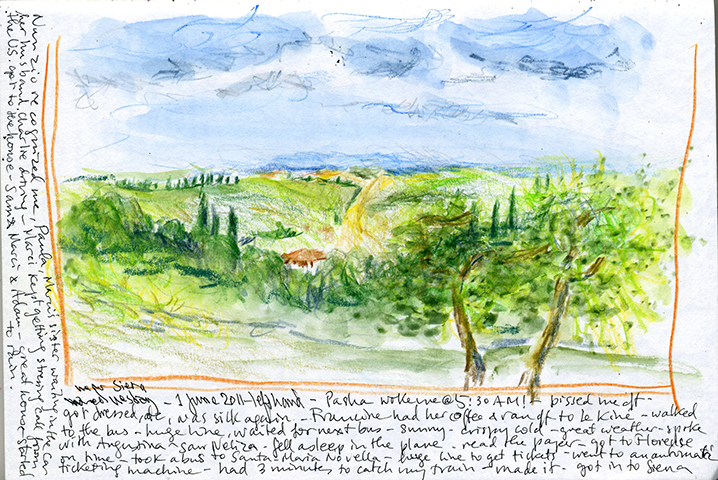 near Siena
- 1 June 2011 - left hand - Pasha woke me @ 5:30 AM! - pissed me off -
got dressed, etc, was sick again - Francine had her coffee & ran off to - walked
to the bus - huge line, waited for next bus - sunny - crispy cold - great weather - spoke
with Argentina - San - fell asleep in the plane - read the paper - got to Florence
on time - took a bus to Santa Maria Novella - huge line to get tickets - went to an automatic
ticketing machine - had 3 minutes to catch my train - made it - got in to Siena
Nunzio recognized me, Paula, Marci's sister waiting in the car
her husband Charlie - Marci kept getting stressy call from
the US. got to the house - Sam & Marci & Adam - great house - started
to rain.